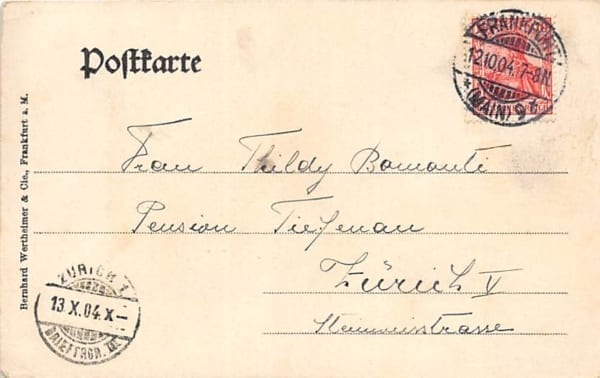 Postkarte
FRANKFURT
12.10.04.7-8N.
*(MAIN) 9
Frau Thildy Bomonti
Pension Tiefenau
Zürich V
Bernhard Wertheimer & Cie., Frankfurt a. M.
ZÜRICH 1
13.X.04.X-
BRIEFTRGR. III